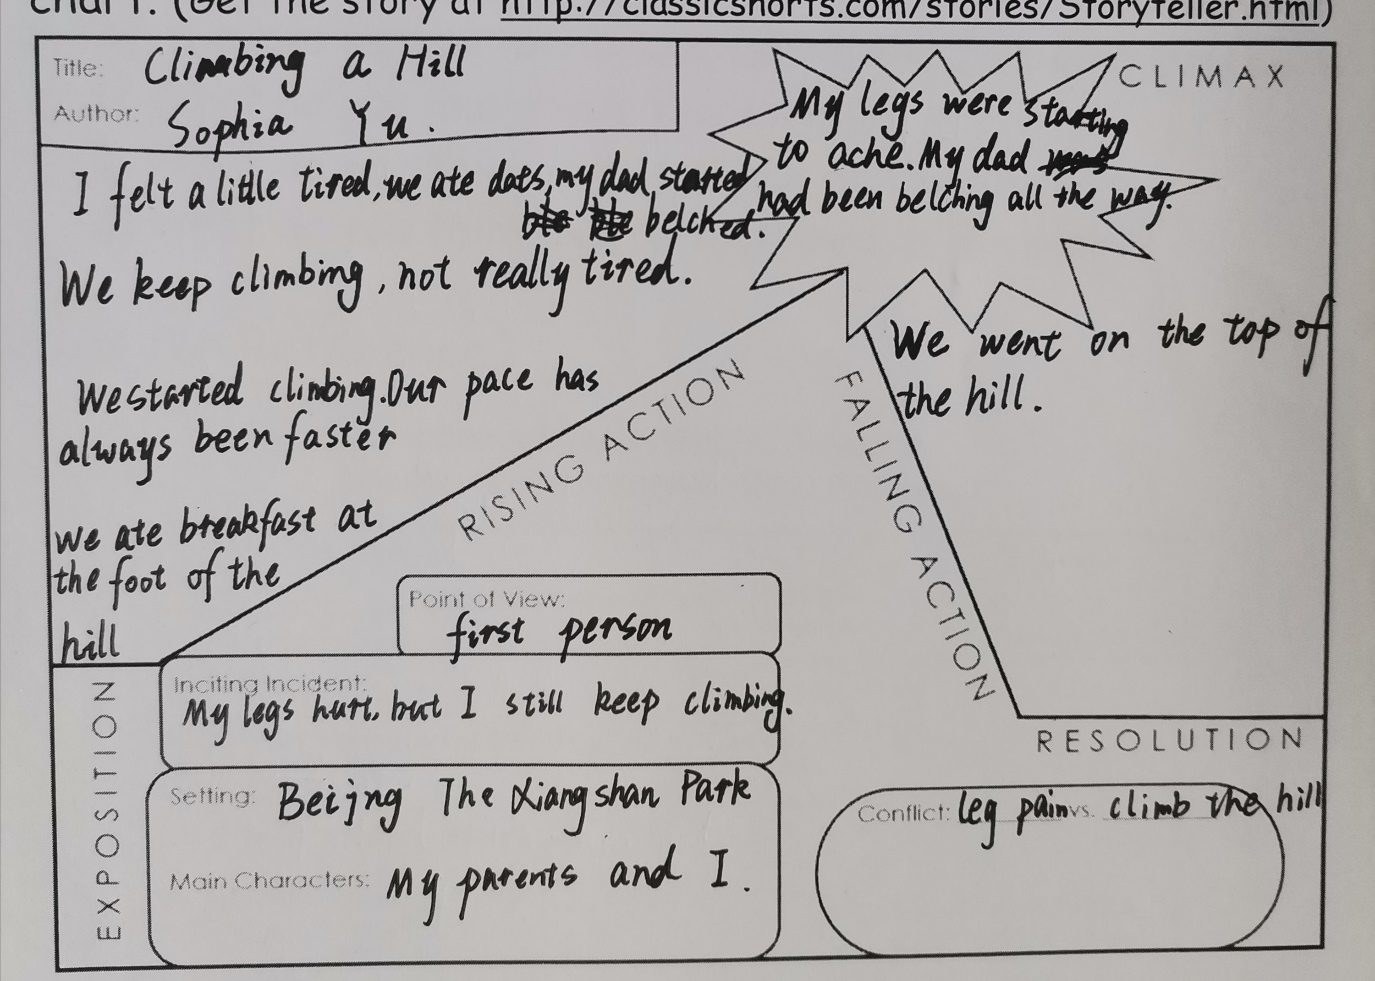 chart. (Get the story at http://classicshorts.com/stories/Storyteller.html)
Title: Climbing a Hill
Author: Sophia Yu.
CLIMAX
My legs were starting
to ache. My dad
had been belching all the way.
I felt a little tired, we ate dats, my dad started
belched.
We keep climbing, not really tired.
We started climbing. Our pace has
always been faster
we ate breakfast at
the foot of the
hill
RISING ACTION
FALLING ACTION
We went on the top of
the hill.
Point of View:
first person
Inciting Incident:
My legs hurt, but I still keep climbing.
EXPOSITION
Setting: Beijng The Xiangshan Park
Main Characters: My parents and I.
RESOLUTION
Conflict: leg pain vs. climb the hill